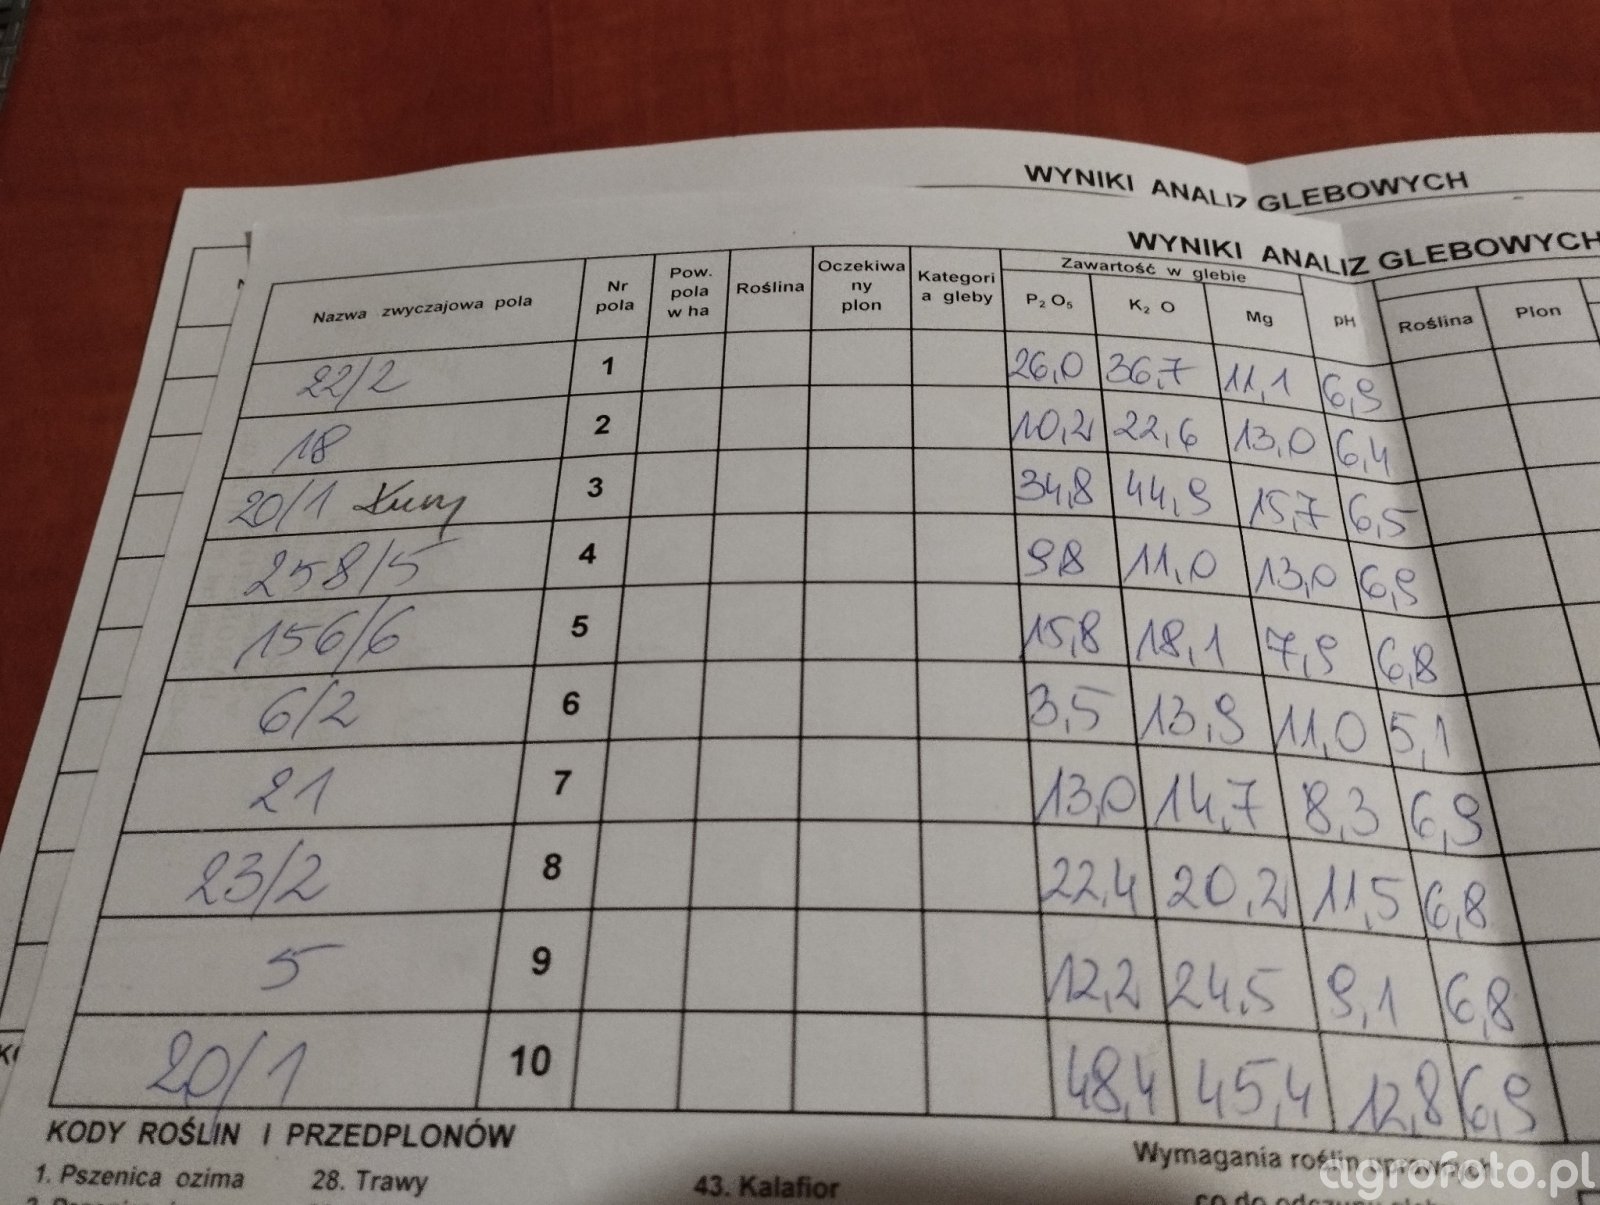 WYNIKI ANALIZ GLEBOWYCH
WYNIKI ANALIZ GLEBOWYCH
Nazwa zwyczajowa pola Nr pola Pow. pola w ha Roślina Oczekiwany plon Kategoria gleby Zawartość w glebie P₂O₅ K₂O Mg pH Roślina Plon
22/2 1 26,0 36,7 11,1 6,9
18 2 10,2 22,6 13,0 6,4
20/1 3 34,8 44,9 15,7 6,5
258/5 4 9,8 11,0 13,0 6,9
156/6 5 15,8 18,1 7,9 6,8
6/2 6 3,5 13,9 11,0 5,1
21 7 13,0 14,7 8,3 6,9
23/2 8 22,4 20,2 11,5 6,8
5 9 12,2 24,5 9,1 6,8
20/1 10 48,4 45,4 12,8 6,9
KODY ROŚLIN I PRZEDPLONÓW
Wymagania roślin uprawnych
1. Pszenica ozima 28. Trawy 43. Kalafior
co do odczynu
agrofoto.pl